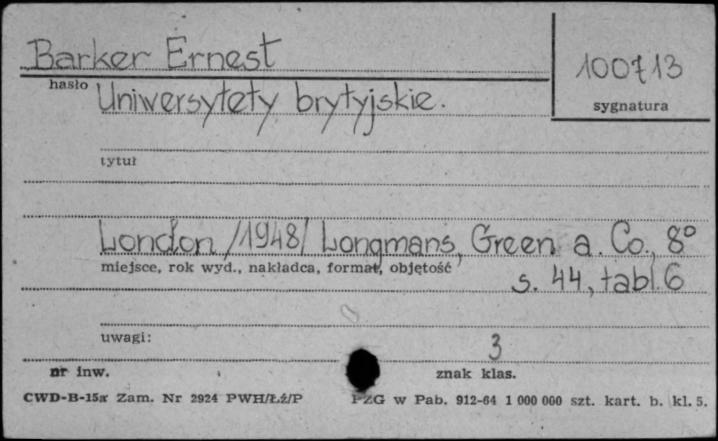 Barker Ernest
100713
hasło
sygnatura
Uniwersytety brytyjskie.
tytuł
London /1948/ Longmans, Green a. Co., 8°
miejsce, rok wyd., nakładca, format, objętość
s. 44, tabl. 6
uwagi:
3
nr inw.
znak klas.
CWD-B-15a Zam. Nr 2924 PWH/Łź/P
PZG w Pab. 912-64 1 000 000 szt. kart. b. kl. 5.